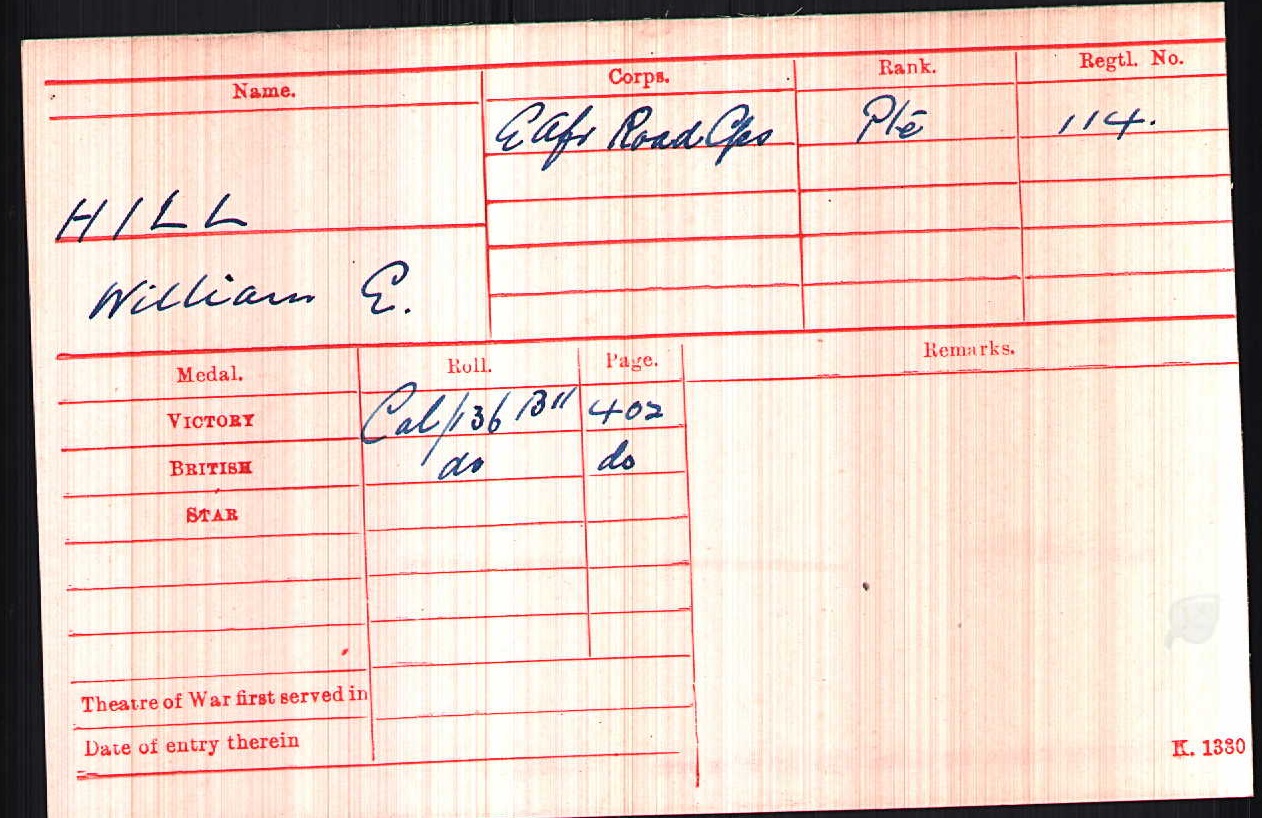 Name. Corps. Rank. Regtl. No.
E Afr Road Cps Pte 114.
HILL
William E.
Medal. Roll. Page. Remarks.
VICTORY Cal/136 B11 402
BRITISH do do
STAR
Theatre of War first served in
Date of entry therein
K. 1380